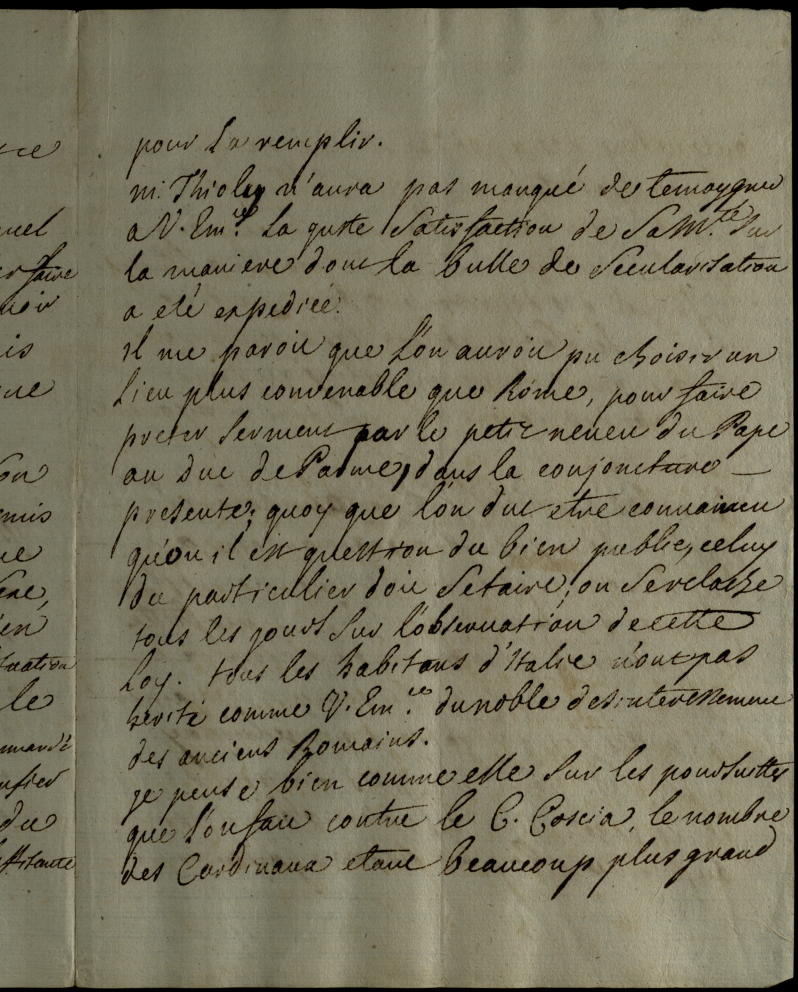 ce
pour la remplir.
m. Thioly n'aura pas manqué de temoygner
a V. Em.ce la juste satisfaction de Sa M.té sur
uel
la maniere dont la bulle de secularisation
faire
a eté expediée.
noir
il me paroit que l'on auroit pu choisir un
is
lieu plus convenable que Rome, pour faire
ue
preter serment par le petit neveu du Pape
au duc de Parme, dans la conjoncture
on
presente; quoy que l'on dut etre convaincu
emis
qu'ou il est question du bien public, celuy
ue
du particulier doit se taire, on se relache
tous les jours sur l'observation de cette
en
loy. tous les habitans d'Italie n'ont pas
tuation
herité comme V. Em.ce du noble desinteressement
le
des anciens Romains.
je pense bien comme elle sur les poursuittes
que l'on fait contre le C. Coscia, le nombre
du
des Cardinaux etant beaucoup plus grand